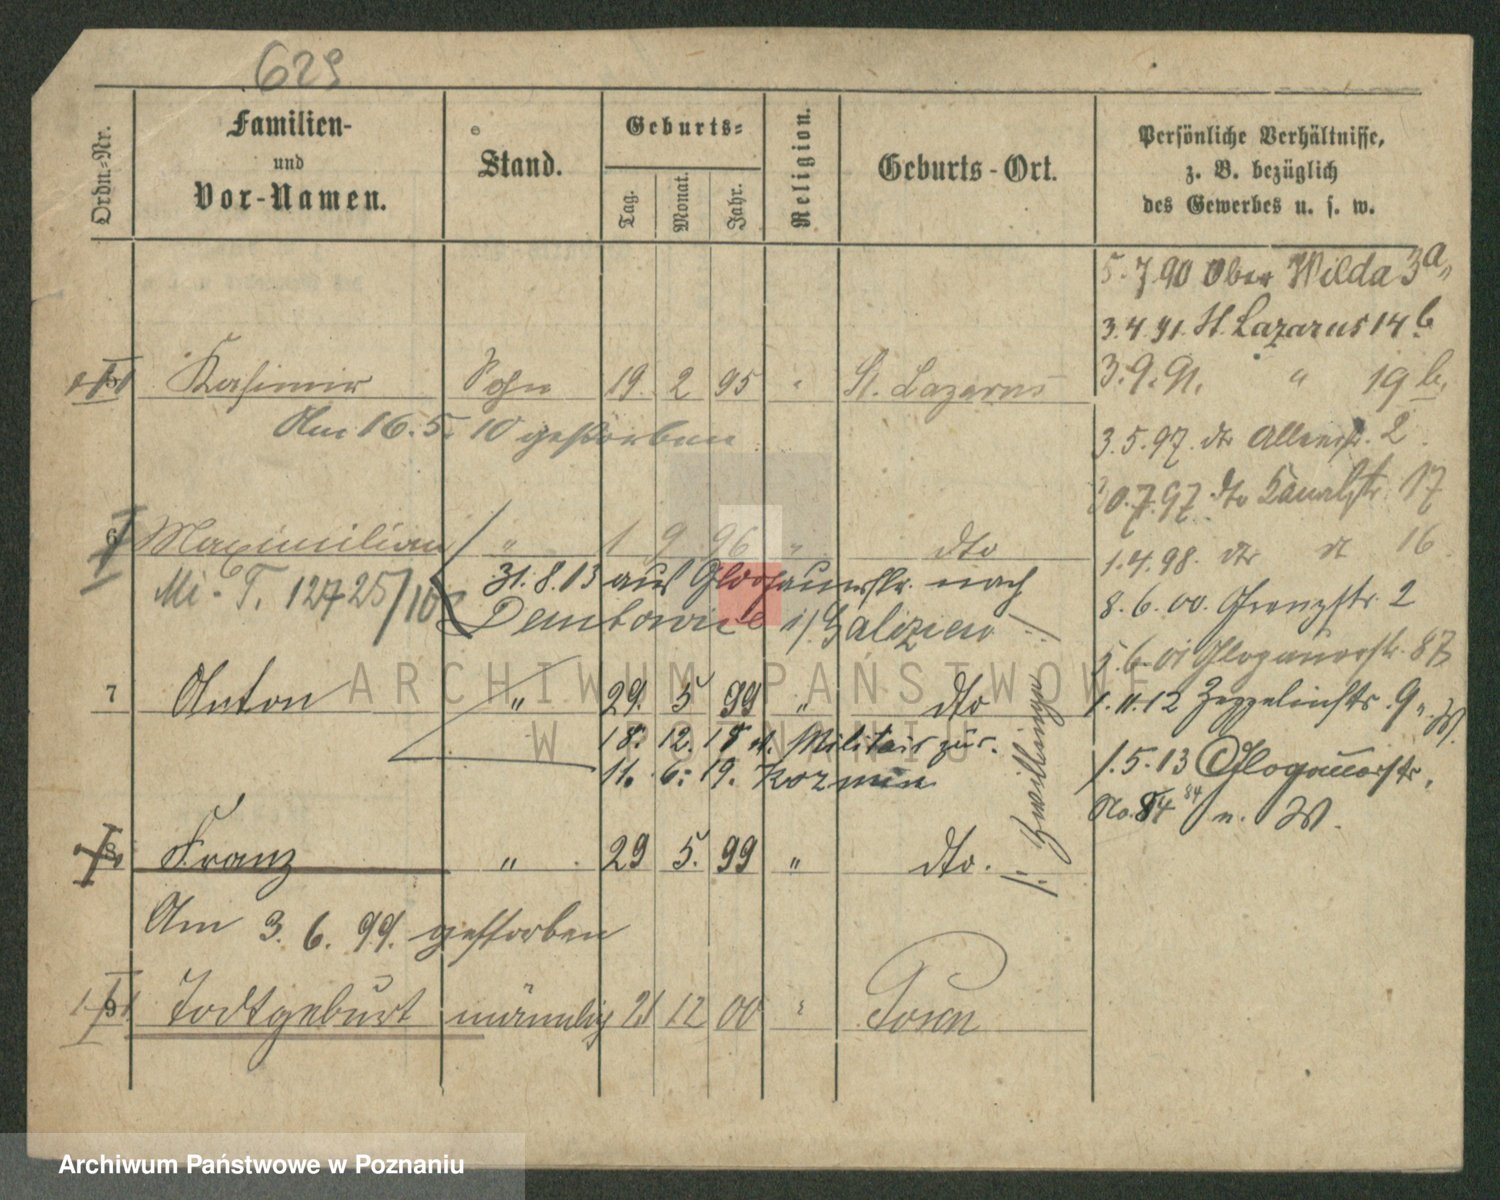 629
Ordn.-Nr.
Familien-
und
Vor-Namen.
Stand.
Geburts-
Tag.
Monat.
Jahr.
Religion.
Geburts-Ort.
Persönliche Verhältnisse,
z. B. bezüglich
des Gewerbes u. s. w.
5.7.90 Ober Wilda 3a,
3.4.91. St. Lazarus 14b
5 Kasimir Sohn 19. 2 95 " St. Lazarus
3.9.91. " 19b.
Am 16.5.10 gestorben
3.5.97. dto 2
0.7.97 dto Kanalstr. 17
6 Maximilian " 1 9 96 " dto
1.4.98. dto dt 16
Mi. T. 12725/10
31.8.13 aus Glogauerstr. nach
8.6.00. Grenzstr. 2
Dembowiec i/Galizien
5.6.01 Glogauerstr. 87
7 Anton " 29. 5 99 " dto
1.11.12 Zeppelinstr. 9. W.
18. 12. 18 v. Militair zur.
1.5.13 Glogauerstr.
11. 6. 19. Kozmin
No. 84 84 n. W.
/: Zwillinge :/
8 Franz " 29 5. 99 " dto.
Am 3.6.99. gestorben
9 Todtgeburt männlich 21 12 00 " Posen
ARCHIWUM PAŃSTWOWE
W POZNANIU
Archiwum Państwowe w Poznaniu